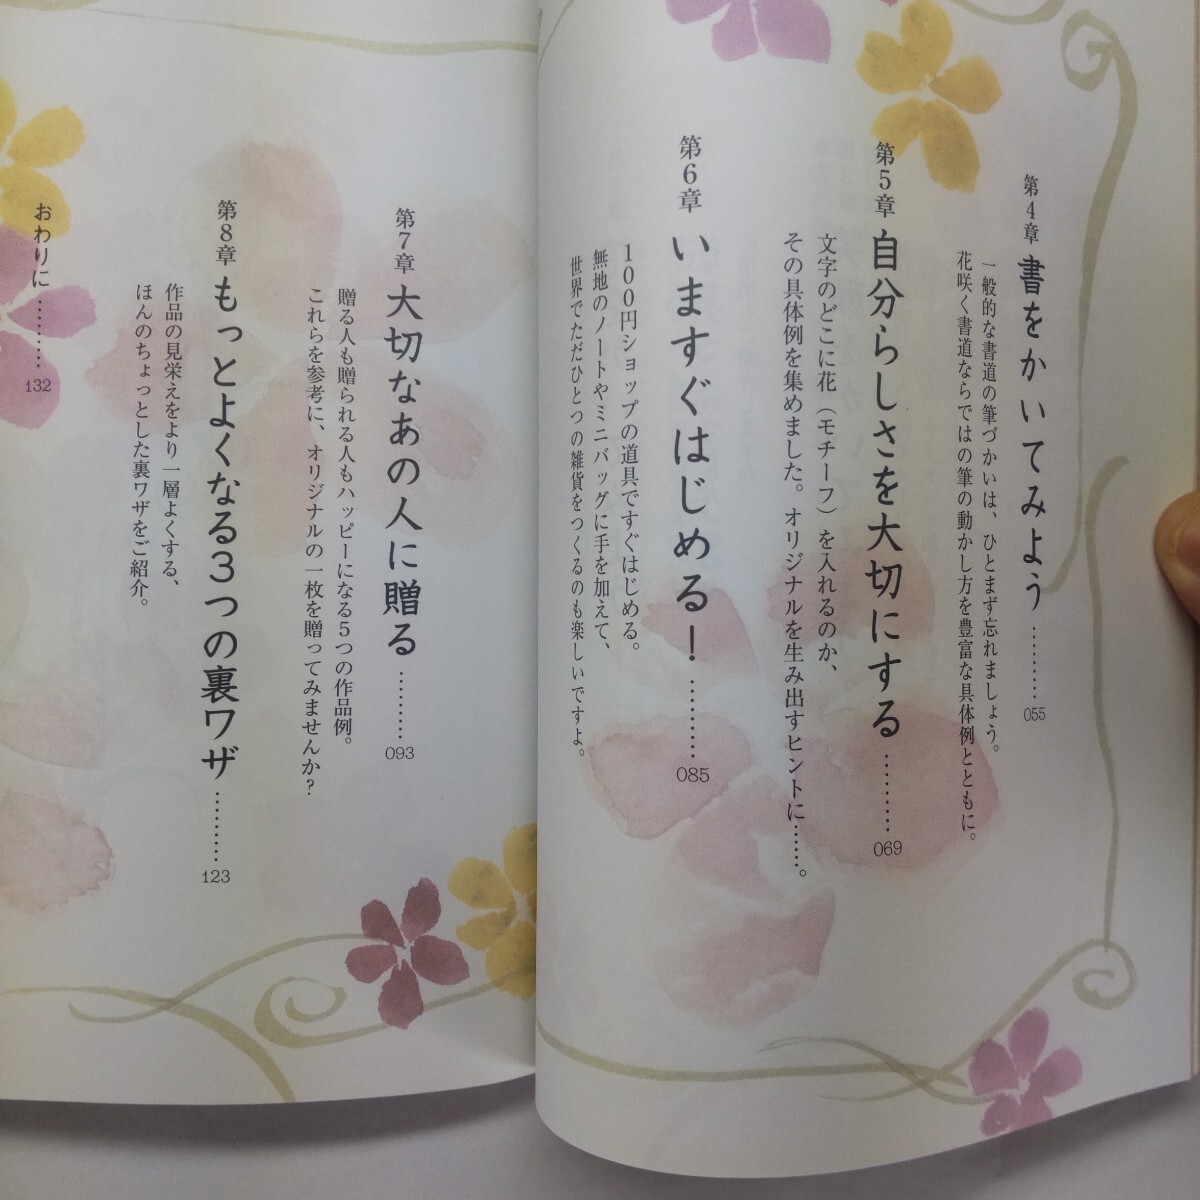 第4章 書をかいてみよう ………… 055
一般的な書道の筆づかいは、ひとまず忘れましょう。
花咲く書道ならではの筆の動かし方を豊富な具体例とともに。
第5章 自分らしさを大切にする ………… 069
文字のどこに花（モチーフ）を入れるのか、
その具体例を集めました。オリジナルを生み出すヒントに……。
第6章 いますぐはじめる！ ………… 085
100円ショップの道具ですぐはじめる。
無地のノートやミニバッグに手を加えて、
世界でただひとつの雑貨をつくるのも楽しいですよ。
第7章 大切なあの人に贈る ………… 093
贈る人も贈られる人もハッピーになる5つの作品例。
これらを参考に、オリジナルの一枚を贈ってみませんか？
第8章 もっとよくなる3つの裏ワザ ………… 123
作品の見栄えをより一層よくする、
ほんのちょっとした裏ワザをご紹介。
おわりに ………… 132